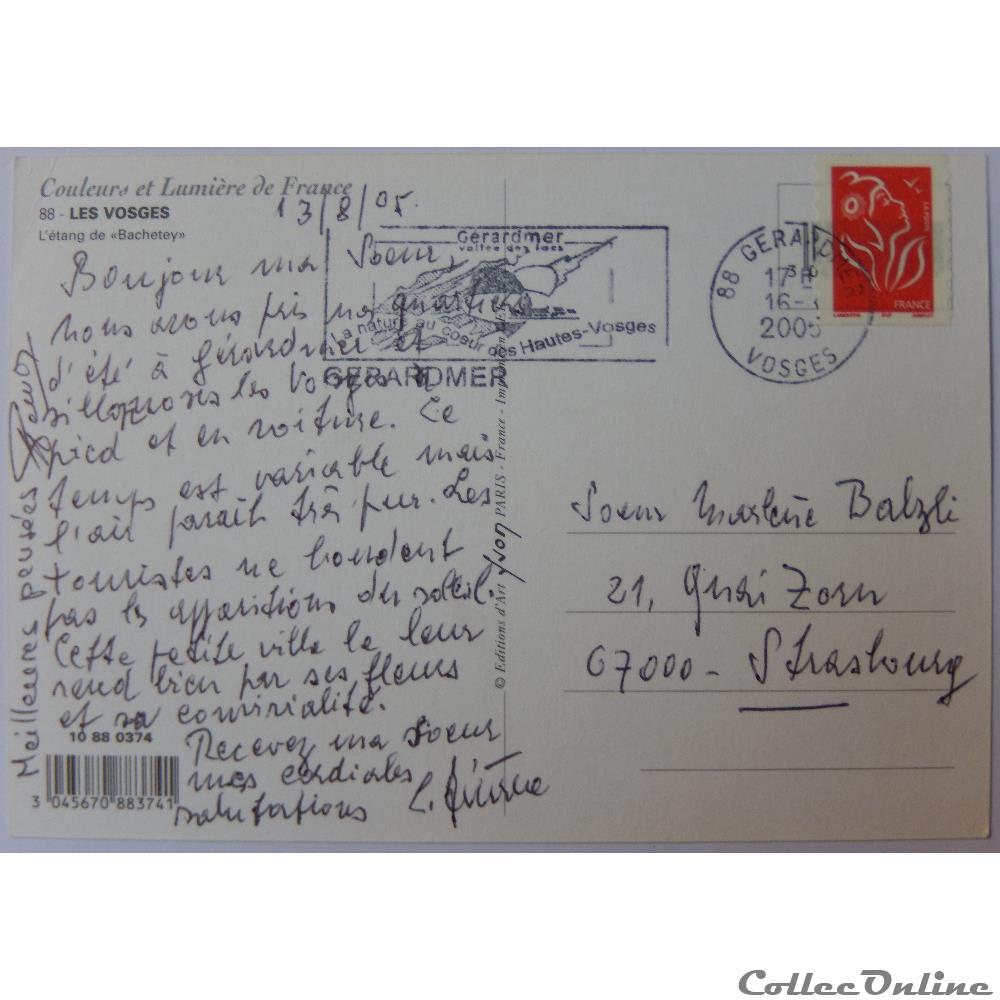 Couleurs et Lumière de France
88 - LES VOSGES
L'étang de «Bachetey»
13/8/05.
Bonjour ma Soeur,
nous avons pris nos quartiers
d'été à Gérardmer et
sillonnons les Vosges à
pied et en voiture. Le
temps est variable mais
l'air parait très pur. Les
touristes ne boudent
pas les apparitions du soleil.
Cette petite ville le leur
rend bien par ses fleurs
et sa convivialité.
Recevez ma soeur
mes cordiales
salutations
Meilleures pensées
10 88 0374
3 045670 883741
© Editions d'Art Yvon PARIS - France - Imprimé
Gérardmer
vallée des lacs
La nature au coeur des Hautes-Vosges
GERARDMER
88 GERARD
17H
16-
2005
VOSGES
LA POSTE
FRANCE
Soeur Marlène Balzli
21, Quai Zorn
67000 - Strasbourg
CollecOnline